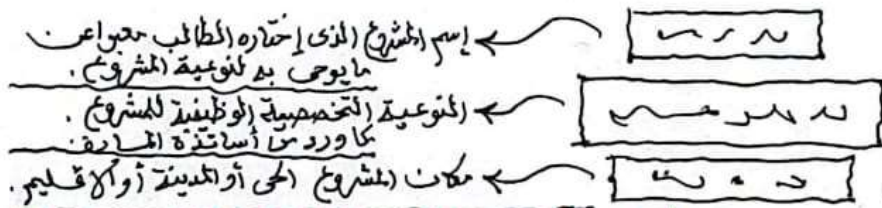 إسم المشروع الذى إختاره الطالب معبرا عن
ما يوحى به لنوعية المشروع.
النوعية التخصصية الوظيفية للمشروع.
كما ورد من أساتذة المادة
مكان المشروع الحى أو المدينة أو الاقليم.